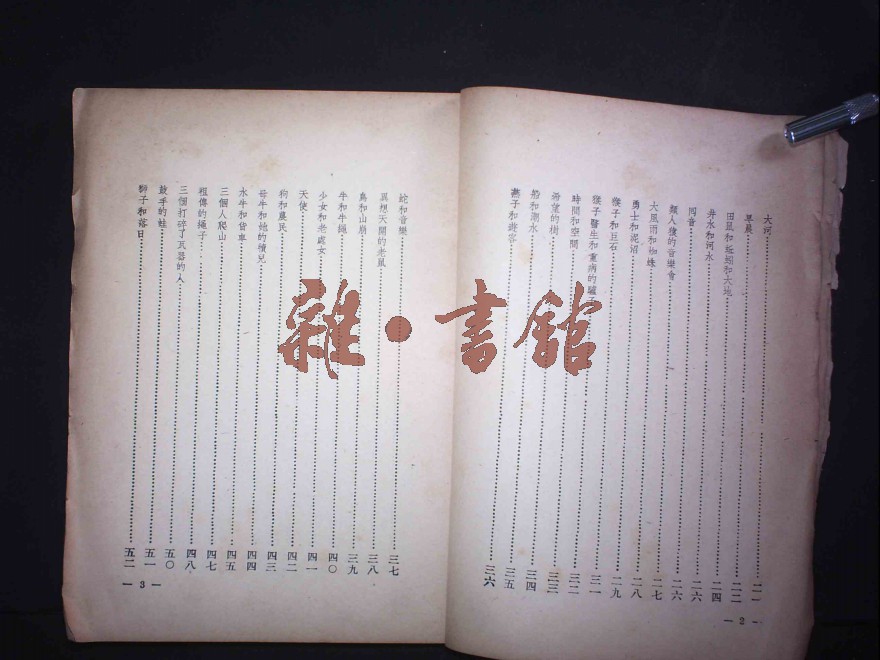 大河……二一
早晨……二二
田鼠和蚯蚓和大地……二四
井水和河水……二六
同音……二六
類人猿的音樂會……二七
大風雨和蜘蛛……二八
勇士和泥沼……二九
猴子和巨石……三一
猴子醫生和重病的驢子……三二
時間和空間……三三
希望的樹……三四
船和潮水……三五
燕子和遊客……三六
— 2 —
蛇和音樂……三七
異想天開的老鼠……三八
鳥和山崩……三九
牛和牛繩……四〇
少女和老處女……四一
天使……四二
狗和農民……四三
母牛和她的犢兒……四四
水牛和……四五
三個人爬山……四七
祖傳的繩子……四八
三個打碎了瓦器的人……五〇
鼓手的蛙……五一
獅子和落日……五二
— 3 —
雜·書館